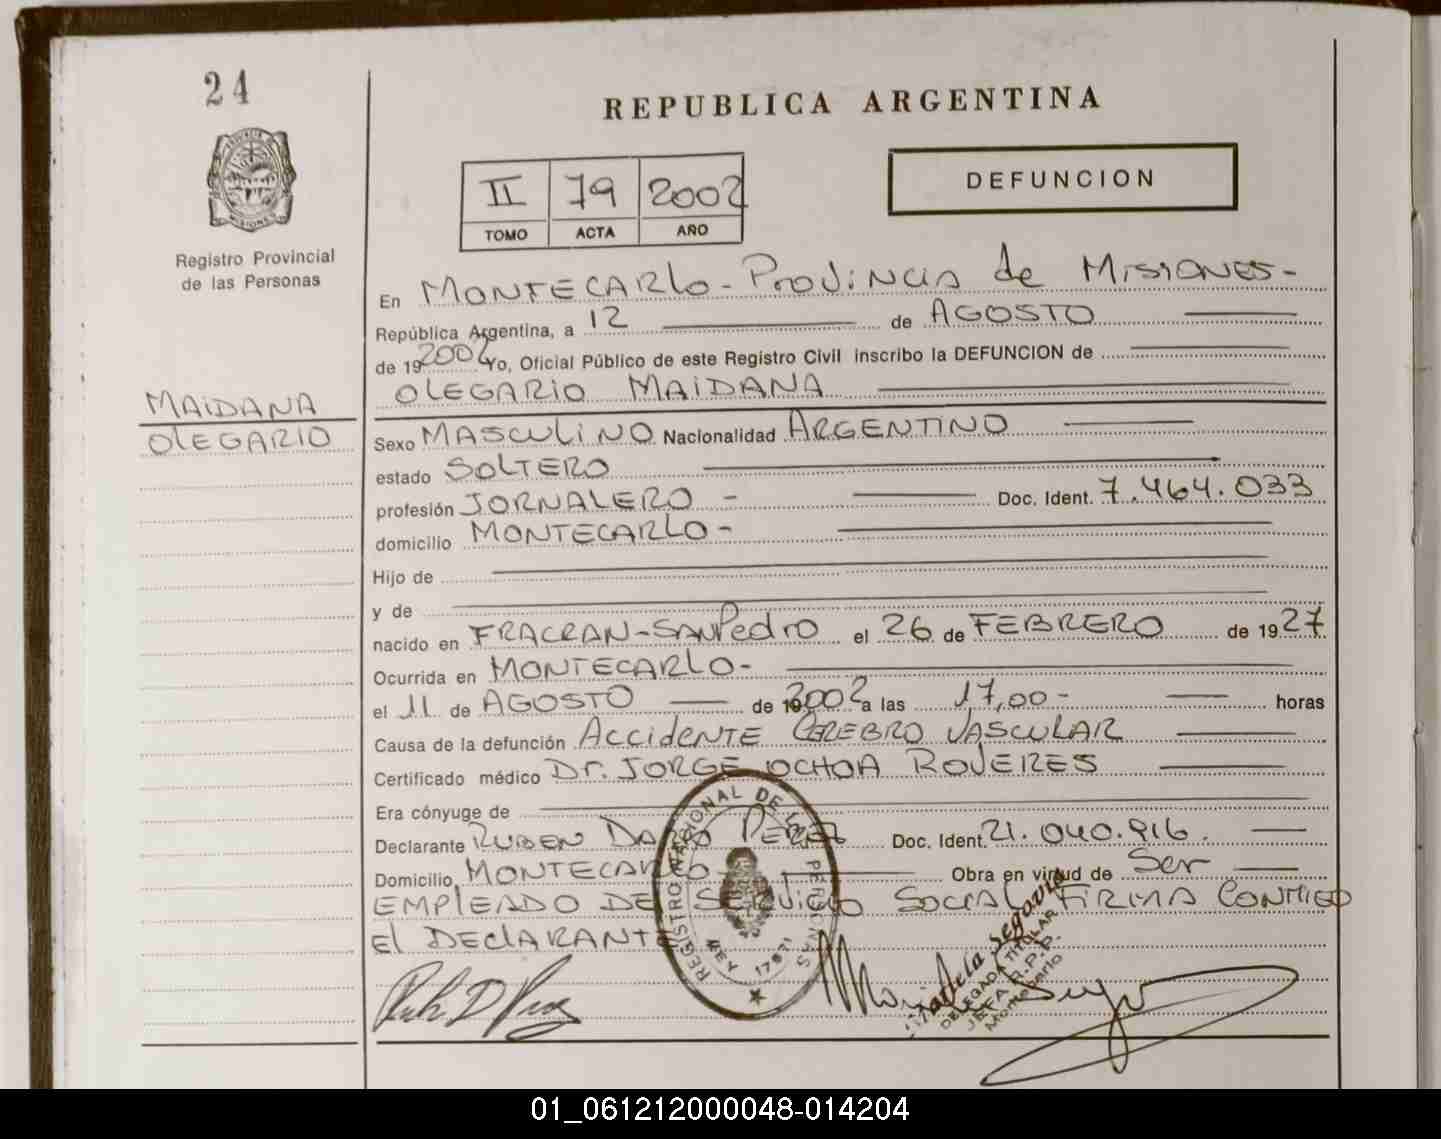 24
REPUBLICA ARGENTINA
II 79 2002
TOMO ACTA AÑO
DEFUNCION
Registro Provincial
de las Personas
En MONTECARLO - PROVINCIA de MISIONES -
República Argentina, a 12 de AGOSTO
de 19 2002 Yo, Oficial Público de este Registro Civil inscribo la DEFUNCION de
OLEGARIO MAIDANA
MAIDANA
OLEGARIO
Sexo MASCULINO Nacionalidad ARGENTINO
estado SOLTERO
profesión JORNALERO - Doc. Ident. 7.464.033
domicilio MONTECARLO -
Hijo de
y de
nacido en FRACRAN - SAN PEDRO el 26 de FEBRERO de 1927
Ocurrida en MONTECARLO -
el 11 de AGOSTO de 2002 a las 17,00 - horas
Causa de la defunción ACCIDENTE CEREBRO VASCULAR
Certificado médico Dr. JORGE OCHOA ROVERES
Era cónyuge de
Declarante RUBEN DARIO PEREZ Doc. Ident. 21.040.916.
Domicilio MONTECARLO Obra en virtud de Ser
EMPLEADO DE SERVICIO SOCIAL FIRMA CONMIGO
El DECLARANTE
REGISTRO NACIONAL DE LAS PERSONAS
LEY 17671
Mariela Segovia
DELEGADA TITULAR
JEFA R.P.P.
Montecarlo
01_061212000048-014204